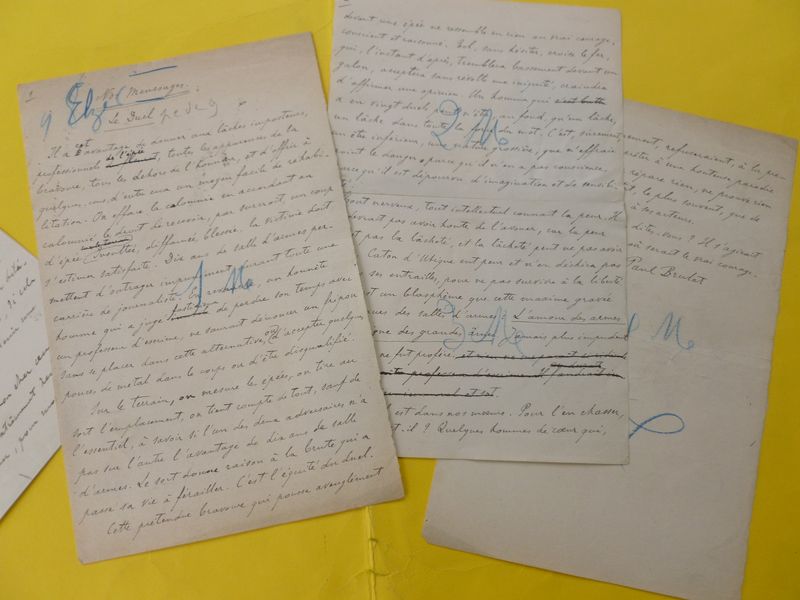 1
9 Elz
Nos Mensonges.
Le Duel
Il a cet avantage de donner aux lâches imposteurs,
professionnels de l'épée, toutes les apparences de la
bravoure, tous les dehors de l'honneur, et d'offrir à
quelques-uns d'entre eux un moyen facile de réhabi-
litation. On efface la calomnie en accordant au
calomnié le droit de recevoir, par surcroît, un coup
d'épée. Insultée, diffamée, blessée, la victime doit
s'estimer satisfaite. Dix ans de salle d'armes per-
mettent d'outrager impunément durant toute une
carrière de journaliste. En revanche, un honnête
homme qui a jugé de perdre son temps avec
un professeur d'escrime, ne saurait démasquer un fripon
sans se placer dans cette alternative, ou d'accepter quelques
pouces de métal dans le corps ou d'être disqualifié.
Sur le terrain, on mesure les épées, on tire au
sort l'emplacement, on tient compte de tout, sauf de
l'essentiel, à savoir si l'un des deux adversaires n'a
pas sur l'autre l'avantage de dix ans de salle
d'armes. Le sort donne raison à la brute qui a
passé sa vie à férailler. C'est l'équité du duel.
Cette prétendue bravoure qui pousse aveuglement
1 Me
devant une épée ne ressemble en rien au vrai courage,
conscient et raisonné. Tel, sans hésiter, croise le fer,
qui, l'instant d'après, tremblera bassement devant un
galon, acceptera sans révolte une iniquité, craindra
d'affirmer une opinion. Un homme qui
a eu vingt duels peut n'être, au fond, qu'un lâche,
un lâche dans toute la force du mot. C'est, sûrement,
un être inférieur, une nature grossière, que n'effraie
point le danger parce qu'il n'en a pas conscience,
parce qu'il est dépourvu d'imagination et de sensibi-
2 Me
tout nerveux, tout intellectuel connaît la peur. Il
devrait pas avoir honte de l'avouer, car la peur
est pas la lâcheté, et la lâcheté peut ne pas avoir
Caton d'Utique eut peur et n'en déchira pas
ses entrailles, pour ne pas survivre à la liberté
est un blasphème que cette maxime gravée
des salles d'armes : L'amour des armes
des grandes âmes. Jamais plus impudent
ne fut proféré
est dans nos mœurs. Pour l'en chasser,
il ? Quelques hommes de cœur qui,
3 Me
refuseraient à la
à une honteuse parodie
répare rien, ne prouve rien
le plus souvent, que de
à ses auteurs.
dites-vous ? Il s'agirait
où serait le vrai courage.
Paul Brulat
Me